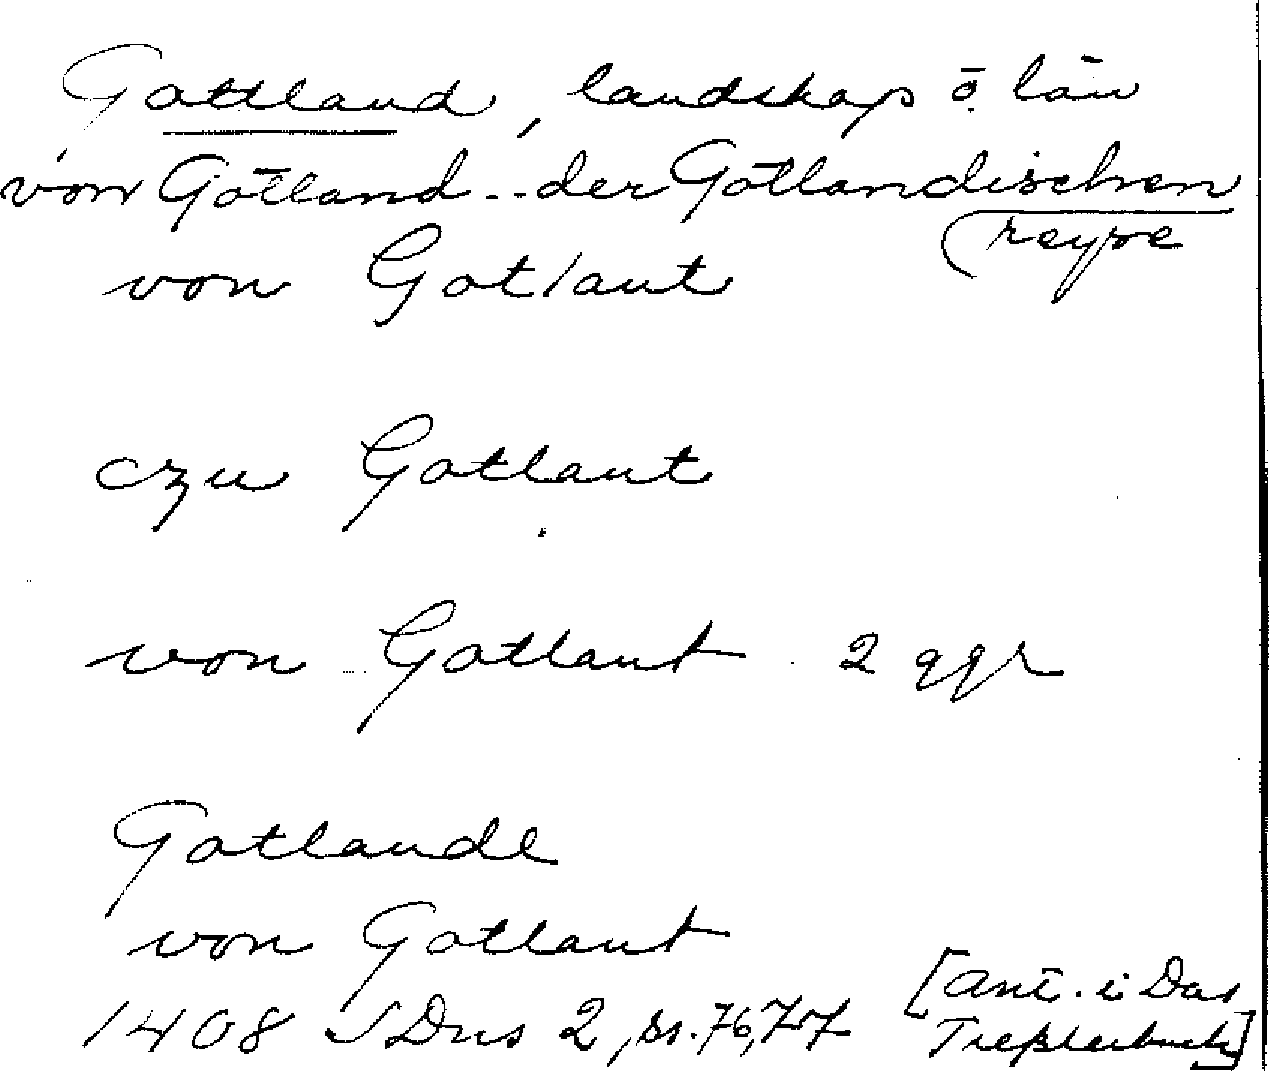 Gottland, landskap ō. län
von Gotland - - der Gotlandischen
(reyse
von Gotlant
czu Gotlant
von Gotlant 2 ggr
Gotlande
von Gotlant
1408 SDns 2, ss. 76, 77 [Ant. i Das
Treßlerbuch]